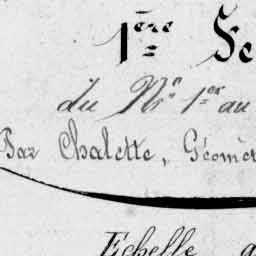 1ère Se
du N° 1er au
Par Chalette, Géomèt
Echelle d